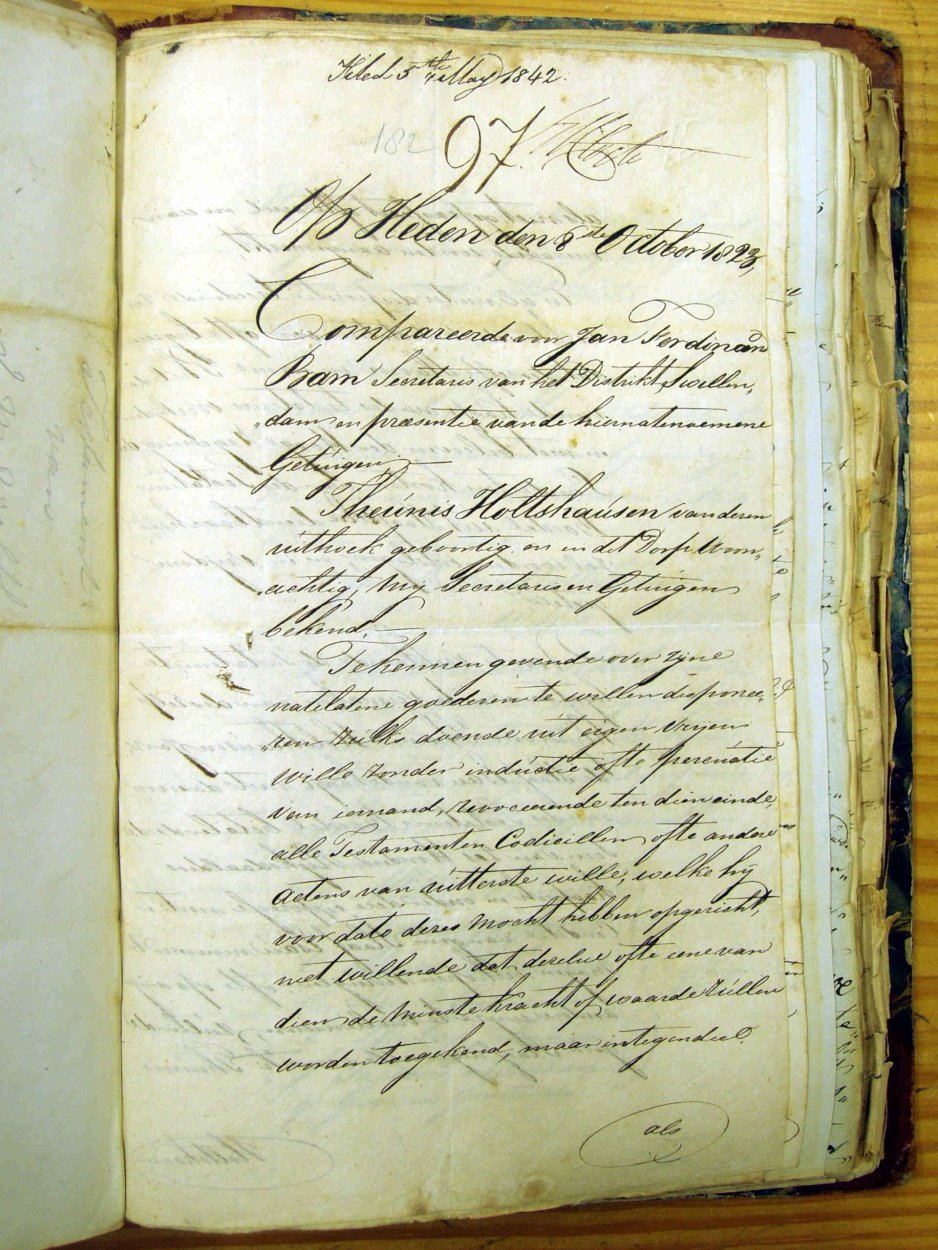 Filed 5th May 1842.
182
97.
Op Heden den 8ste October 1823,
Compareerde voor Jan Ferdinand
Bam Secretaris van het Distrikt Swellen,
„dam en præsentie van de hiernatenoemene
Getuigen;
Theunis Holtshausen van deren
uithoek geboortig en in dit Dorp woon„
„achtig, mij Secretaris en Getuigen
bekend.
Te kennen gevende over zyne
natelatene goederen te willen disponee„
„ren zulks doende uit eigen vryen
wille zonder inductie ofte persuatie
van iemand, revoceerende ten dien einde,
alle Testamenten Codicillen ofte andere
actens van uitterste wille, welke hy
voor dato deres mocht hebben opgericht,
niet willende dat deselve ofte eene van
dien de minste kracht of waarde zullen
worden toegekend, maar integendeel
als